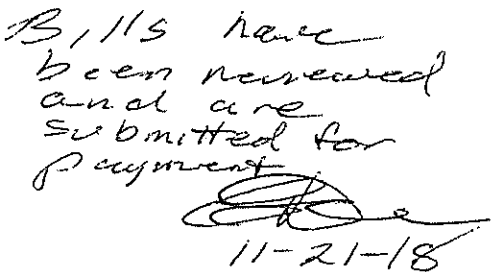 Bills have
been reviewed
and are
submitted for
payment
11-21-18